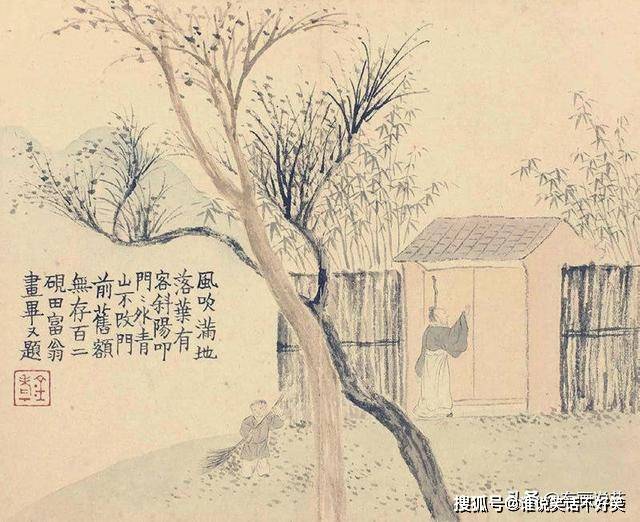 風吹滿地
落葉有
客斜陽叩
門〻外青
山不改門
前舊額
無存百二
硯田富翁
畫畢又題
搜狐号@谁说笑话不好笑